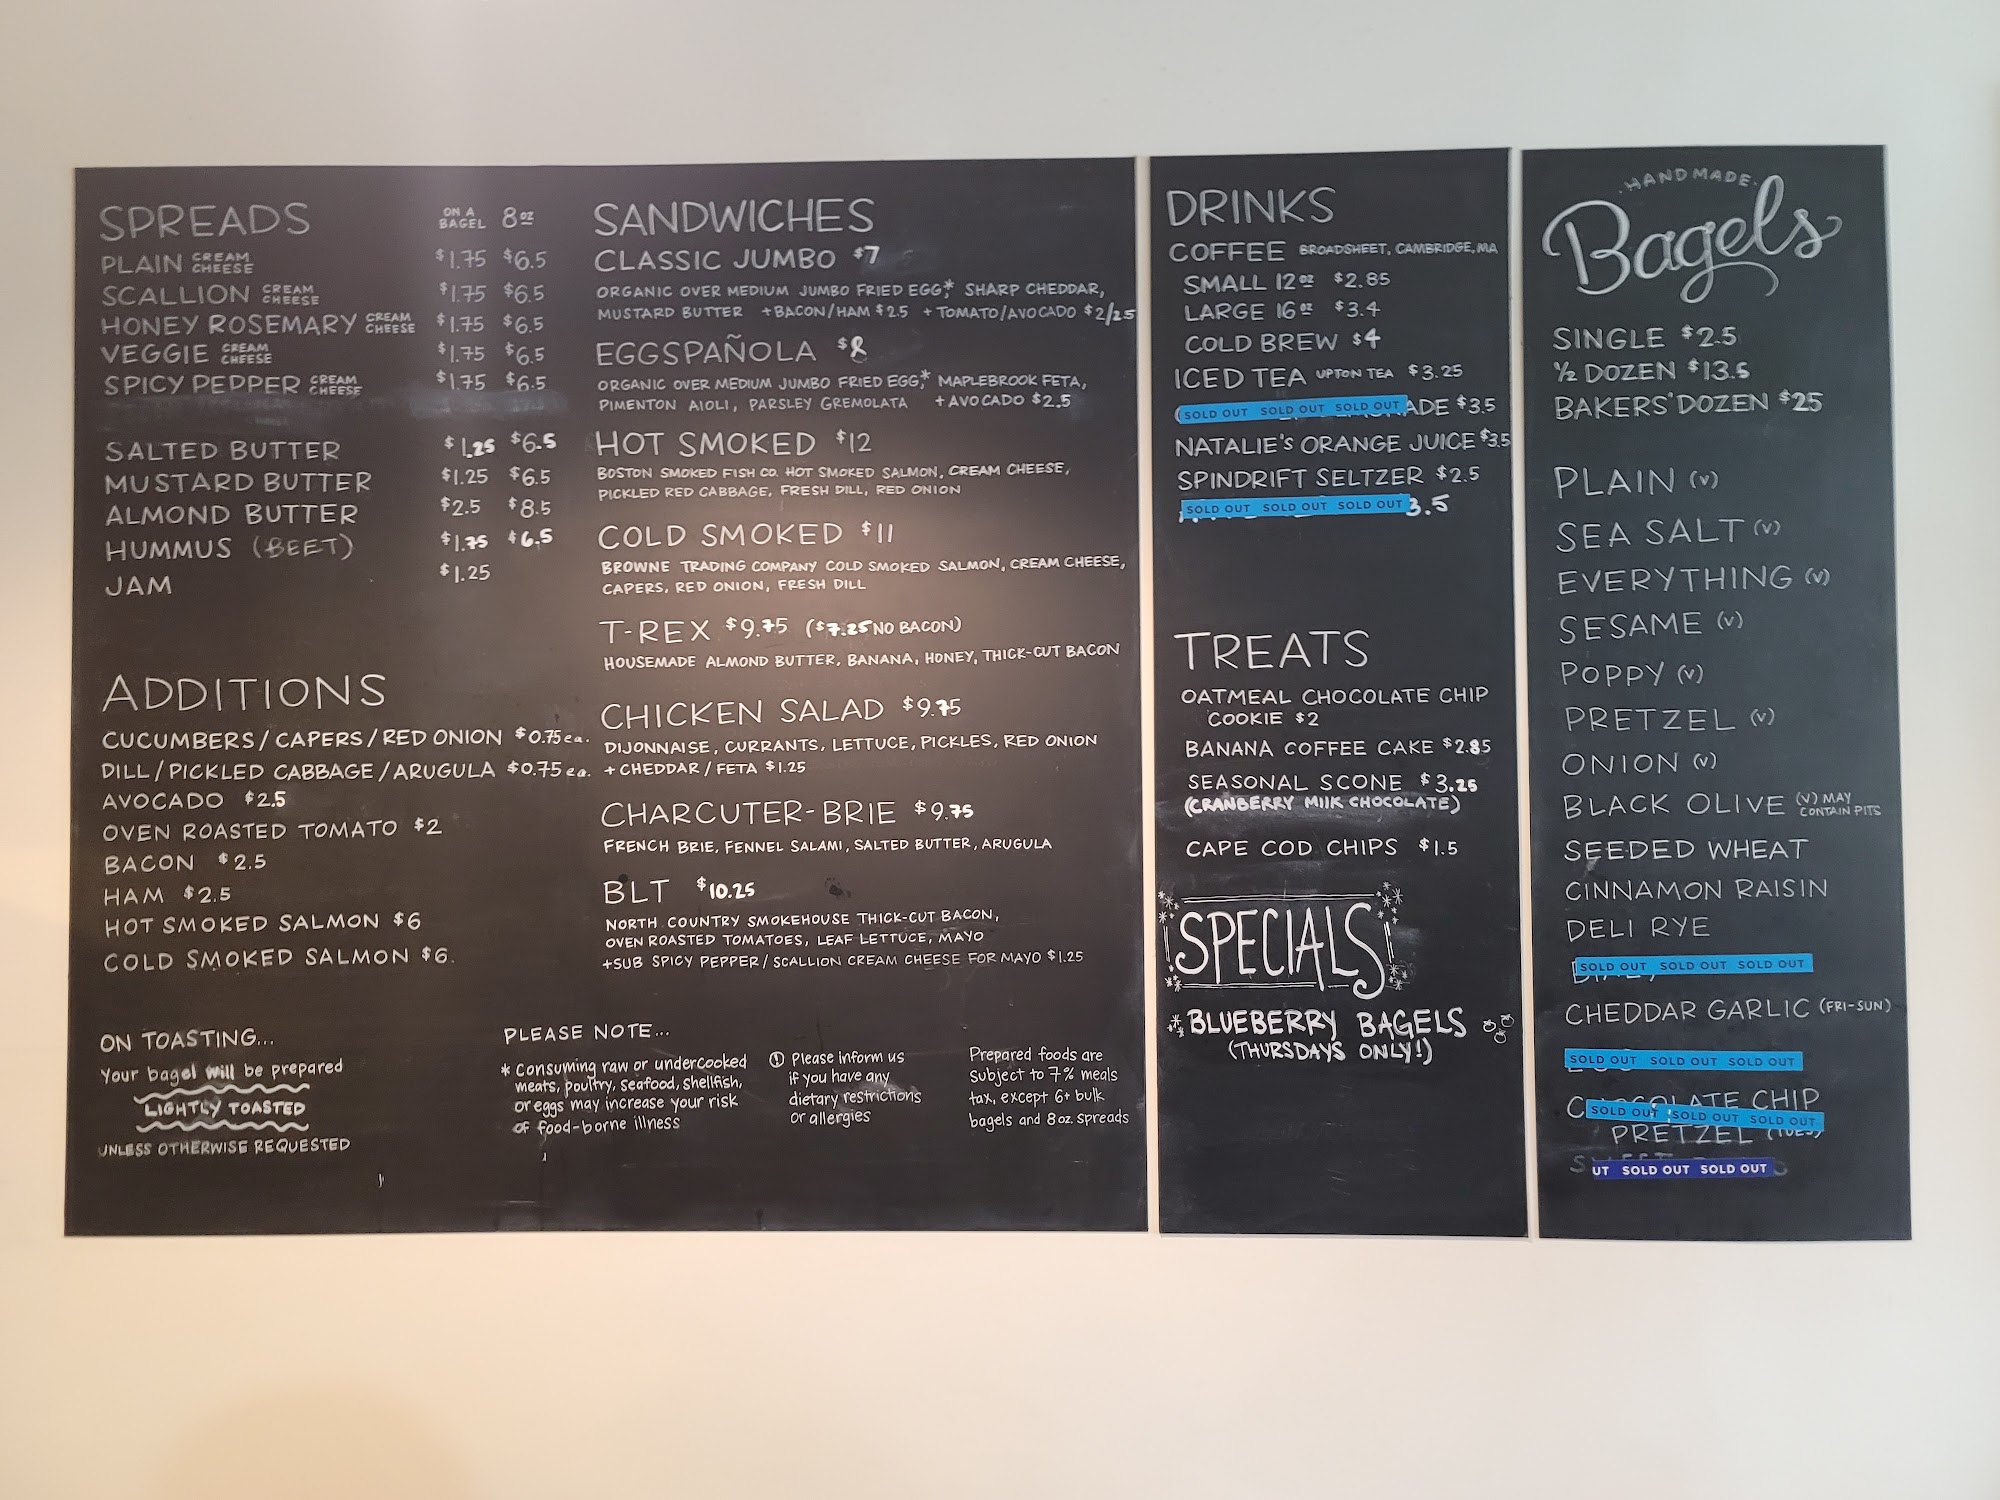 SPREADS ON A BAGEL 8oz
PLAIN CREAM CHEESE $1.75 $6.5
SCALLION CREAM CHEESE $1.75 $6.5
HONEY ROSEMARY CREAM CHEESE $1.75 $6.5
VEGGIE CREAM CHEESE $1.75 $6.5
SPICY PEPPER CREAM CHEESE $1.75 $6.5
SALTED BUTTER $1.25 $6.5
MUSTARD BUTTER $1.25 $6.5
ALMOND BUTTER $2.5 $8.5
HUMMUS (BEET) $1.75 $6.5
JAM $1.25
ADDITIONS
CUCUMBERS/CAPERS/RED ONION $0.75 ea.
DILL/PICKLED CABBAGE/ARUGULA $0.75 ea.
AVOCADO $2.5
OVEN ROASTED TOMATO $2
BACON $2.5
HAM $2.5
HOT SMOKED SALMON $6
COLD SMOKED SALMON $6.
ON TOASTING...
Your bagel will be prepared
LIGHTLY TOASTED
UNLESS OTHERWISE REQUESTED
SANDWICHES
CLASSIC JUMBO $7
ORGANIC OVER MEDIUM JUMBO FRIED EGG,* SHARP CHEDDAR,
MUSTARD BUTTER +BACON/HAM $2.5 +TOMATO/AVOCADO $2/2.5
EGGSPAÑOLA $8
ORGANIC OVER MEDIUM JUMBO FRIED EGG,* MAPLEBROOK FETA,
PIMENTON AIOLI, PARSLEY GREMOLATA +AVOCADO $2.5
HOT SMOKED $12
BOSTON SMOKED FISH CO. HOT SMOKED SALMON, CREAM CHEESE,
PICKLED RED CABBAGE, FRESH DILL, RED ONION
COLD SMOKED $11
BROWNE TRADING COMPANY COLD SMOKED SALMON, CREAM CHEESE,
CAPERS, RED ONION, FRESH DILL
T-REX $9.75 ($7.25 NO BACON)
HOUSEMADE ALMOND BUTTER, BANANA, HONEY, THICK-CUT BACON
CHICKEN SALAD $9.75
DIJONNAISE, CURRANTS, LETTUCE, PICKLES, RED ONION
+ CHEDDAR/FETA $1.25
CHARCUTER-BRIE $9.75
FRENCH BRIE, FENNEL SALAMI, SALTED BUTTER, ARUGULA
BLT $10.25
NORTH COUNTRY SMOKEHOUSE THICK-CUT BACON,
OVEN ROASTED TOMATOES, LEAF LETTUCE, MAYO
+SUB SPICY PEPPER/SCALLION CREAM CHEESE FOR MAYO $1.25
PLEASE NOTE...
* Consuming raw or undercooked
meats, poultry, seafood, shellfish,
or eggs may increase your risk
of food-borne illness
! Please inform us
if you have any
dietary restrictions
or allergies
Prepared foods are
subject to 7% meals
tax, except 6+ bulk
bagels and 8oz. spreads
DRINKS
COFFEE BROADSHEET, CAMBRIDGE, MA
SMALL 12oz $2.85
LARGE 16oz $3.4
COLD BREW $4
ICED TEA UPTON TEA $3.25
SOLD OUT SOLD OUT SOLD OUT ADE $3.5
NATALIE'S ORANGE JUICE $3.5
SPINDRIFT SELTZER $2.5
SOLD OUT SOLD OUT SOLD OUT 3.5
TREATS
OATMEAL CHOCOLATE CHIP
COOKIE $2
BANANA COFFEE CAKE $2.85
SEASONAL SCONE $3.25
(CRANBERRY MILK CHOCOLATE)
CAPE COD CHIPS $1.5
SPECIALS
BLUEBERRY BAGELS
(THURSDAYS ONLY!)
HANDMADE
Bagels
SINGLE $2.5
1/2 DOZEN $13.5
BAKERS' DOZEN $25
PLAIN (V)
SEA SALT (V)
EVERYTHING (V)
SESAME (V)
POPPY (V)
PRETZEL (V)
ONION (V)
BLACK OLIVE (V) MAY CONTAIN PITS
SEEDED WHEAT
CINNAMON RAISIN
DELI RYE
SOLD OUT SOLD OUT SOLD OUT
CHEDDAR GARLIC (FRI-SUN)
SOLD OUT SOLD OUT SOLD OUT
CHOCOLATE CHIP
SOLD OUT SOLD OUT SOLD OUT
PRETZEL (TUES)
UT SOLD OUT SOLD OUT